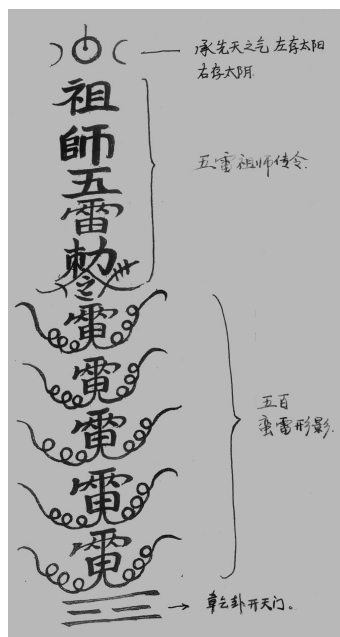 承先天之气 左存太阳
右存太阴
祖
師
五
雷
勅
令
五雷祖师传令
五百
蛮雷形影.
乾卦开天门。